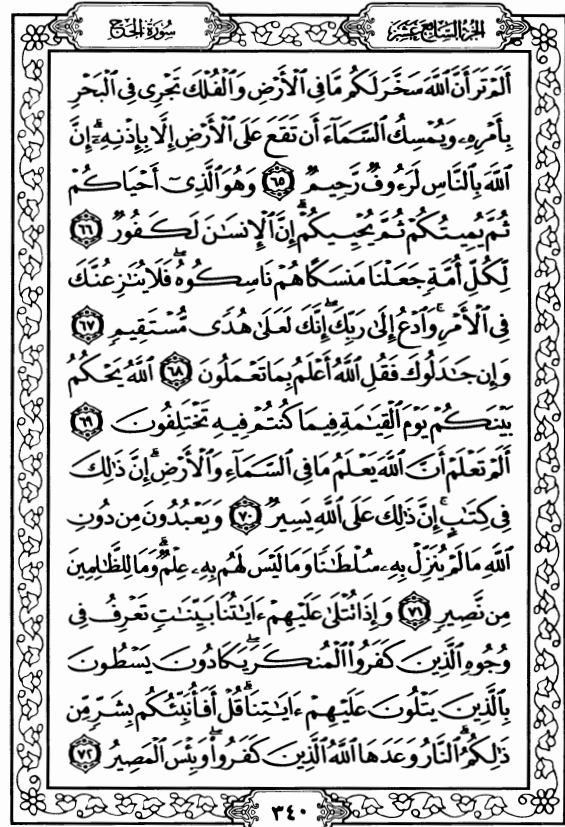 سُورَةُ الحَجّ
الجُزءُ السَّابِعَ عَشَرَ
أَلَمْ تَرَ أَنَّ ٱللَّهَ سَخَّرَ لَكُم مَّا فِى ٱلْأَرْضِ وَٱلْفُلْكَ تَجْرِى فِى ٱلْبَحْرِ
بِأَمْرِهِۦ وَيُمْسِكُ ٱلسَّمَآءَ أَن تَقَعَ عَلَى ٱلْأَرْضِ إِلَّا بِإِذْنِهِۦٓ ۗ إِنَّ
ٱللَّهَ بِٱلنَّاسِ لَرَءُوفٌ رَّحِيمٌ ٦٥ وَهُوَ ٱلَّذِىٓ أَحْيَاكُمْ
ثُمَّ يُمِيتُكُمْ ثُمَّ يُحْيِيكُمْ ۗ إِنَّ ٱلْإِنسَـٰنَ لَكَفُورٌ ٦٦
لِّكُلِّ أُمَّةٍ جَعَلْنَا مَنسَكًا هُمْ نَاسِكُوهُ ۖ فَلَا يُنَـٰزِعُنَّكَ
فِى ٱلْأَمْرِ ۚ وَٱدْعُ إِلَىٰ رَبِّكَ ۖ إِنَّكَ لَعَلَىٰ هُدًى مُّسْتَقِيمٍ ٦٧
وَإِن جَـٰدَلُوكَ فَقُلِ ٱللَّهُ أَعْلَمُ بِمَا تَعْمَلُونَ ٦٨ ٱللَّهُ يَحْكُمُ
بَيْنَكُمْ يَوْمَ ٱلْقِيَـٰمَةِ فِيمَا كُنتُمْ فِيهِ تَخْتَلِفُونَ ٦٩
أَلَمْ تَعْلَمْ أَنَّ ٱللَّهَ يَعْلَمُ مَا فِى ٱلسَّمَآءِ وَٱلْأَرْضِ ۗ إِنَّ ذَٰلِكَ
فِى كِتَـٰبٍ ۚ إِنَّ ذَٰلِكَ عَلَى ٱللَّهِ يَسِيرٌ ٧٠ وَيَعْبُدُونَ مِن دُونِ
ٱللَّهِ مَا لَمْ يُنَزِّلْ بِهِۦ سُلْطَـٰنًا وَمَا لَيْسَ لَهُم بِهِۦ عِلْمٌ ۗ وَمَا لِلظَّـٰلِمِينَ
مِن نَّصِيرٍ ٧١ وَإِذَا تُتْلَىٰ عَلَيْهِمْ ءَايَـٰتُنَا بَيِّنَـٰتٍ تَعْرِفُ فِى
وُجُوهِ ٱلَّذِينَ كَفَرُوا۟ ٱلْمُنكَرَ ۖ يَكَادُونَ يَسْطُونَ
بِٱلَّذِينَ يَتْلُونَ عَلَيْهِمْ ءَايَـٰتِنَا ۗ قُلْ أَفَأُنَبِّئُكُم بِشَرٍّ مِّن
ذَٰلِكُمُ ۗ ٱلنَّارُ وَعَدَهَا ٱللَّهُ ٱلَّذِينَ كَفَرُوا۟ ۖ وَبِئْسَ ٱلْمَصِيرُ ٧٢
٣٤٠